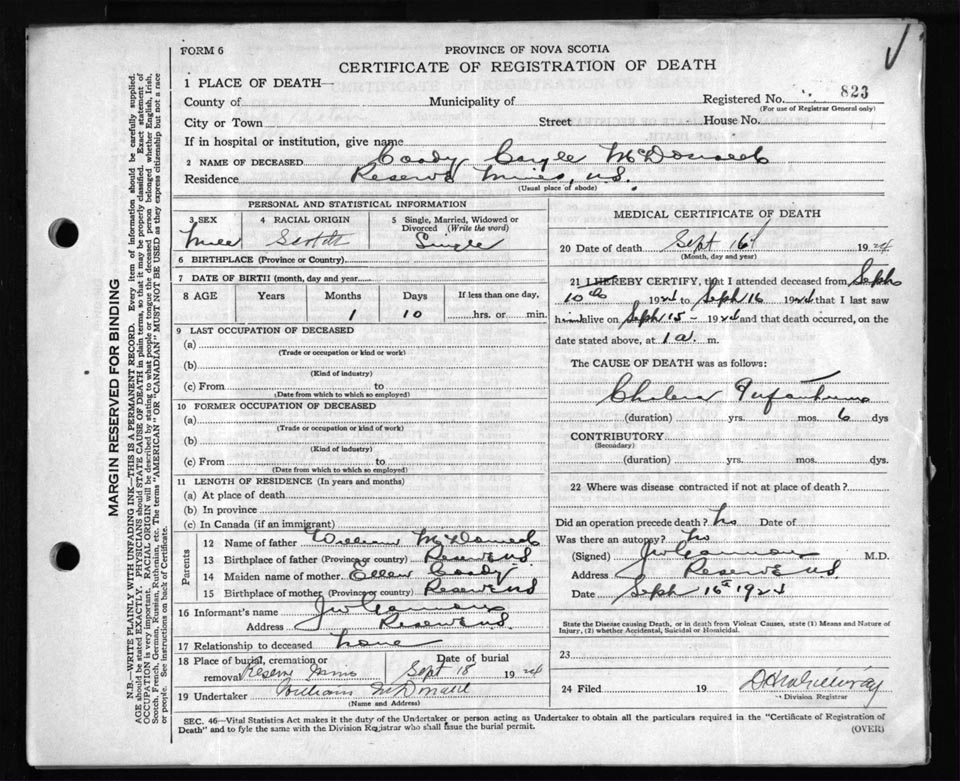 FORM 6
PROVINCE OF NOVA SCOTIA
CERTIFICATE OF REGISTRATION OF DEATH
1 PLACE OF DEATH—
County of Municipality of Registered No. 823
(For use of Registrar General only)
City or Town Street House No.
If in hospital or institution, give name
2 NAME OF DECEASED Coady McDonald
Residence Reserve Mines, N.S.
(Usual place of abode)
PERSONAL AND STATISTICAL INFORMATION
3 SEX 4 RACIAL ORIGIN 5 Single, Married, Widowed or
Divorced (Write the word)
Male Scotch Single
6 BIRTHPLACE (Province or Country)
7 DATE OF BIRTH (month, day and year
8 AGE Years Months Days If less than one day,
1 10 hrs. or min.
9 LAST OCCUPATION OF DECEASED
(a)
(Trade or occupation or kind of work)
(b)
(Kind of industry)
(c) From to
(Date from which to which so employed)
10 FORMER OCCUPATION OF DECEASED
(a)
(Trade or occupation or kind of work)
(b)
(Kind of industry)
(c) From to
(Date from which to which so employed)
11 LENGTH OF RESIDENCE (In years and months)
(a) At place of death
(b) In province
(c) In Canada (if an immigrant)
Parents
12 Name of father William McDonald
13 Birthplace of father (Province or country) Reserve N.S.
14 Maiden name of mother Ellen Coady
15 Birthplace of mother (Province or country) Reserve N.S.
16 Informant's name
Address Reserve N.S.
17 Relationship to deceased none
18 Place of burial, cremation or Date of burial
removal Reserve Mines Sept 18 1924
19 Undertaker William McDonald
(Name and Address)
MEDICAL CERTIFICATE OF DEATH
20 Date of death Sept 16 1924
(Month, day and year)
21 I HEREBY CERTIFY, that I attended deceased from Sept
10th 1924 to Sept 16 1924 that I last saw
him alive on Sept 15 - 1924 and that death occurred, on the
date stated above, at 1 a. m.
The CAUSE OF DEATH was as follows:
Cholera Infantum
(duration) yrs. mos. 6 dys
CONTRIBUTORY
(Secondary)
(duration) yrs. mos. dys.
22 Where was disease contracted if not at place of death?
Did an operation precede death? no Date of
Was there an autopsy? no
(Signed) M.D.
Address Reserve N.S
Date Sept 16th 1924
State the Disease causing Death, or in death from Violent Causes, state (1) Means and Nature of
Injury, (2) whether Accidental, Suicidal or Homicidal.
23
24 Filed 19
Division Registrar
SEC. 46—Vital Statistics Act makes it the duty of the Undertaker or person acting as Undertaker to obtain all the particulars required in the "Certificate of Registration of
Death" and to fyle the same with the Division Registrar who shall issue the burial permit.
(OVER)
MARGIN RESERVED FOR BINDING
N.B.—WRITE PLAINLY WITH UNFADING INK—THIS IS A PERMANENT RECORD. Every item of information should be carefully supplied.
AGE should be stated EXACTLY. PHYSICIANS should STATE CAUSE OF DEATH in plain terms, so that it may be properly classified. Exact statement of
OCCUPATION is very important. RACIAL ORIGIN will be described by stating to what people or tongue the deceased person belonged whether English, Irish,
Scotch, French, German, Russian, Ruthenian, etc. The terms "AMERICAN" OR "CANADIAN" MUST NOT BE USED as they express citizenship but not a race
or people. See instructions on back of Certificate.